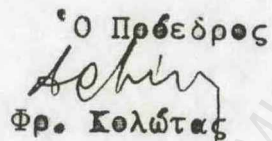 Ὁ Πρόεδρος
Φρ. Κολώτας